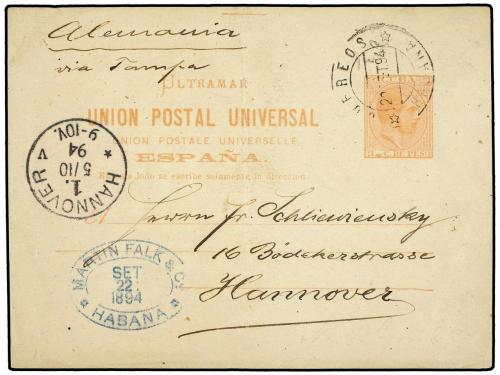 Alemania
via Tampa
ULTRAMAR
UNION POSTAL UNIVERSAL
UNION POSTALE UNIVERSELLE
ESPAÑA.
lado se escribe solamente la direccion
Herrn Fr. Schliewiensky
16 Bödekerstrasse
Hannover
CORREOS
HANNOVER
1.
5/10
94
9-10V.
MARTIN FALK & Co
SET
22
1894
HABANA